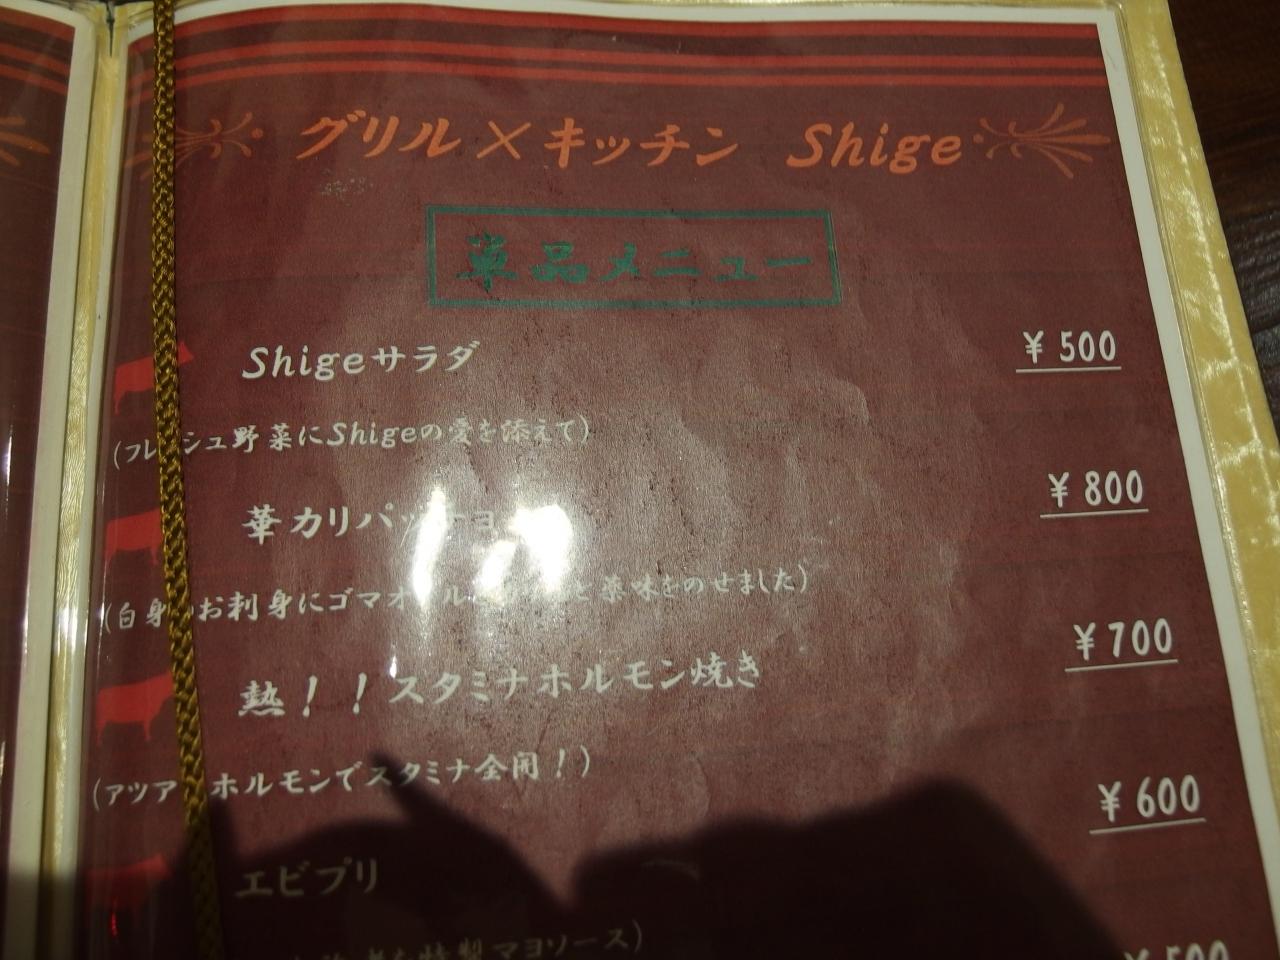 グリル×キッチン Shige
単品メニュー
Shigeサラダ ¥500
(フレッシュ野菜にShigeの愛を添えて)
華カリパッチョ ¥800
(白身のお刺身にゴマオイル と薬味をのせました)
熱！！スタミナホルモン焼き ¥700
(アツアツホルモンでスタミナ全開！)
エビプリ ¥600
特製マヨソース)
¥500